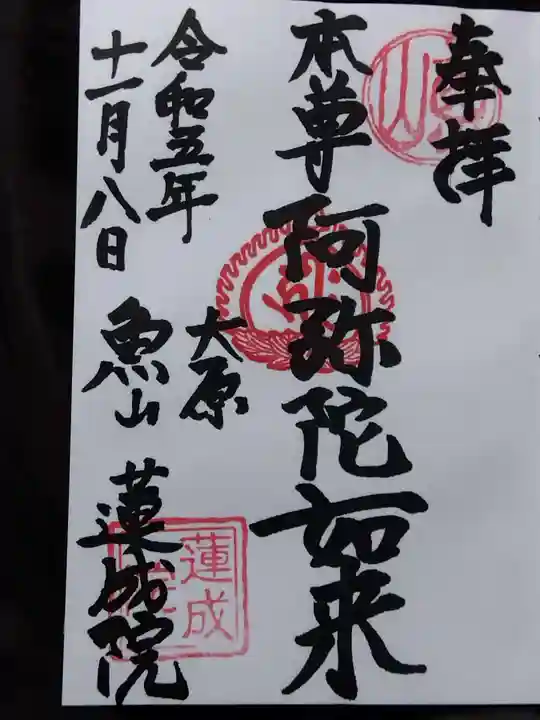 奉拝
本尊 阿弥陀如来
大原
令和五年
十一月八日
魚山 蓮成院
蓮成